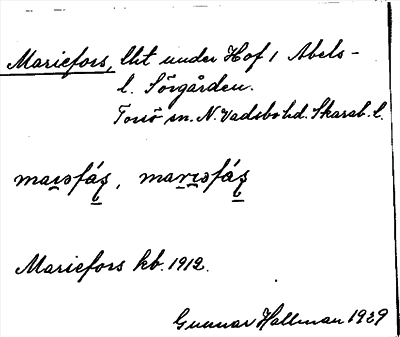 Mariefors, lht under Hof 1 Abels-
l. Sörgården.
Torsö sn. N. Vadsbo hd. Skarab. l.
Mariefors kb. 1912.
Gunnar Hallman 1929